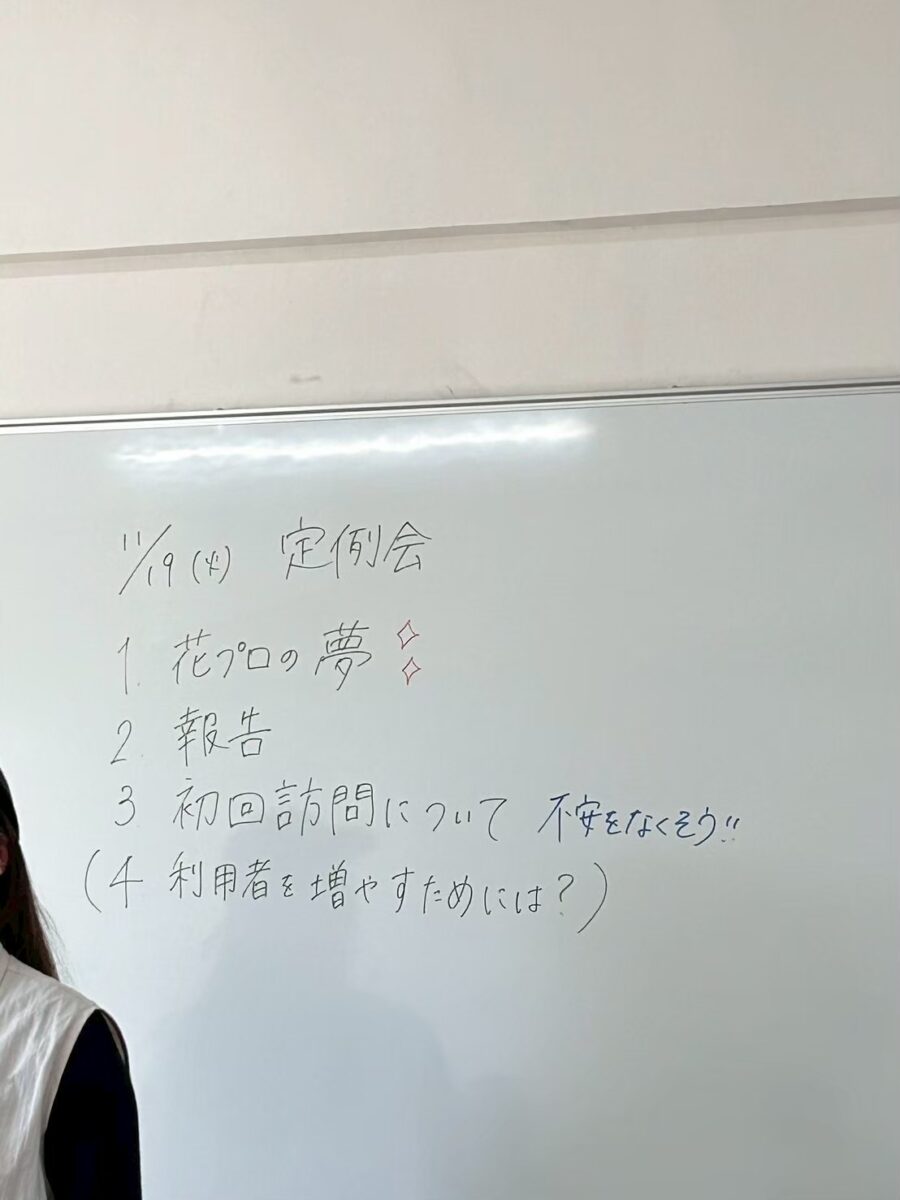 11/19(火) 定例会
1. 花プロの夢
2. 報告
3 初回訪問について 不安をなくそう!!
(4 利用者を増やすためには?)